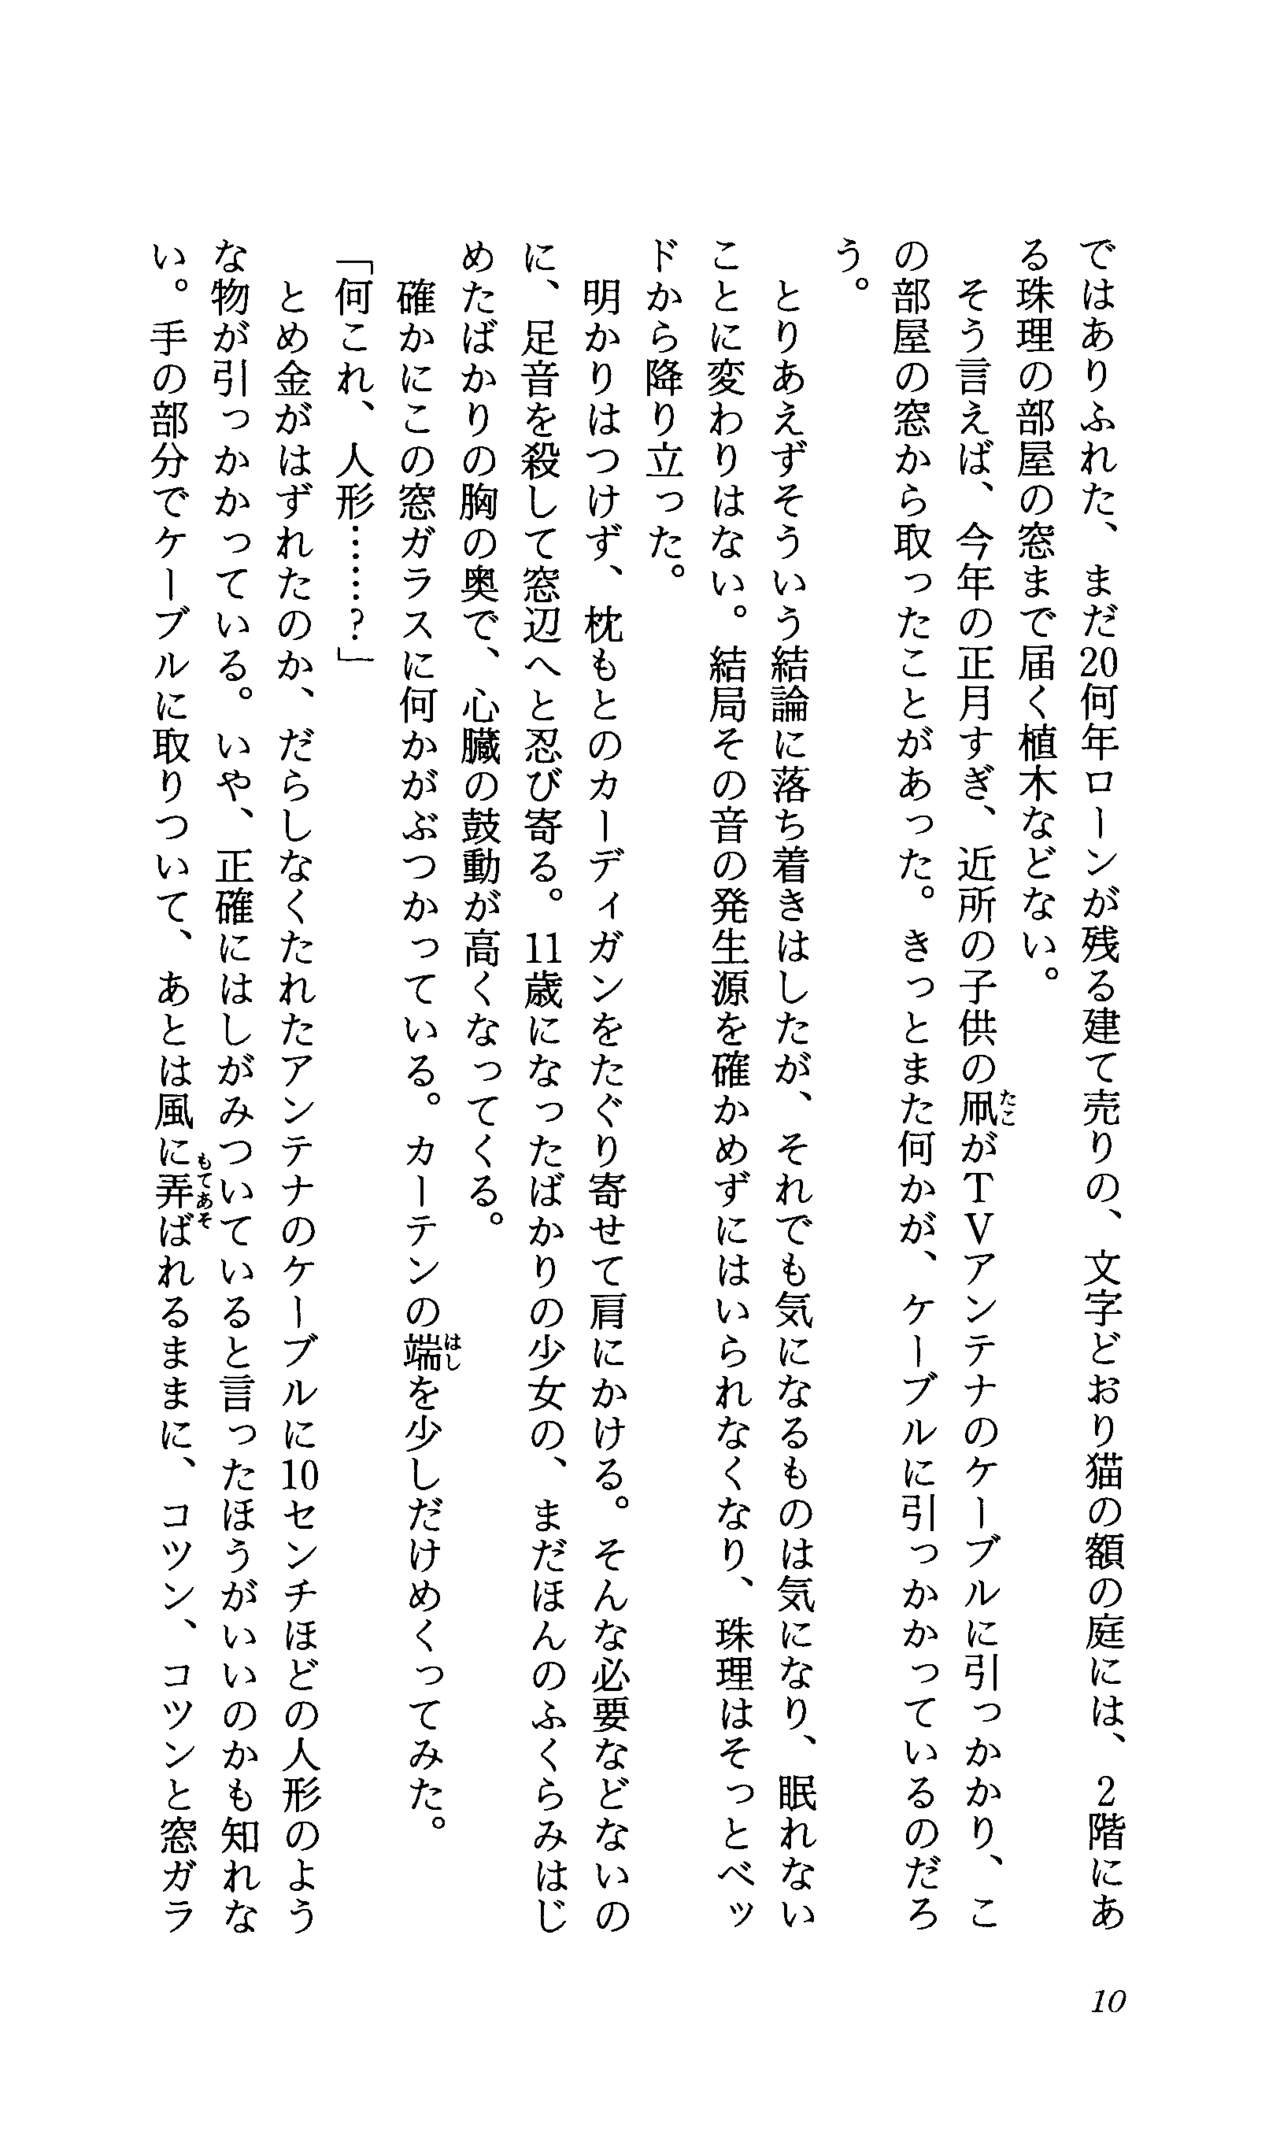 ではありふれた、まだ20何年ローンが残る建て売りの、文字どおり猫の額の庭には、2階にあ
る珠理の部屋の窓まで届く植木などない。
　そう言えば、今年の正月すぎ、近所の子供の凧がTVアンテナのケーブルに引っかかり、こ
の部屋の窓から取ったことがあった。きっとまた何かが、ケーブルに引っかかっているのだろ
う。
　とりあえずそういう結論に落ち着きはしたが、それでも気になるものは気になり、眠れない
ことに変わりはない。結局その音の発生源を確かめずにはいられなくなり、珠理はそっとベッ
ドから降り立った。
　明かりはつけず、枕もとのカーディガンをたぐり寄せて肩にかける。そんな必要などないの
に、足音を殺して窓辺へと忍び寄る。11歳になったばかりの少女の、まだほんのふくらみはじ
めたばかりの胸の奥で、心臓の鼓動が高くなってくる。
　確かにこの窓ガラスに何かがぶつかっている。カーテンの端を少しだけめくってみた。
「何これ、人形……?」
　とめ金がはずれたのか、だらしなくたれたアンテナのケーブルに10センチほどの人形のよう
な物が引っかかっている。いや、正確にはしがみついていると言ったほうがいいのかも知れな
い。手の部分でケーブルに取りついて、あとは風に弄ばれるままに、コツン、コツンと窓ガラ
たこ
はし
もてあそ
10